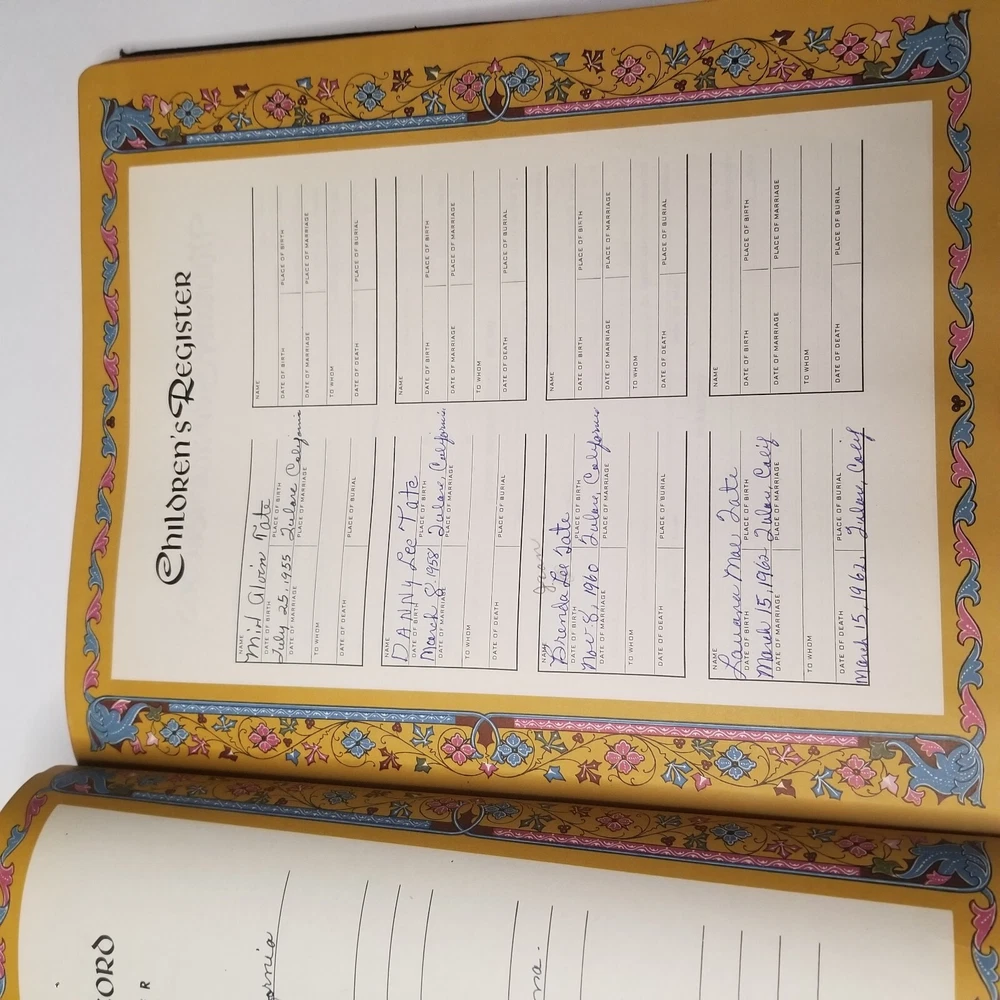 Children's Register
NAME
Milt Alvin Tate
DATE OF BIRTH PLACE OF BIRTH
July 25, 1955 Tulare California
DATE OF MARRIAGE PLACE OF MARRIAGE
TO WHOM
DATE OF DEATH PLACE OF BURIAL
NAME
DANNY Lee Tate
DATE OF BIRTH PLACE OF BIRTH
March 8, 1958 Tulare, California
DATE OF MARRIAGE PLACE OF MARRIAGE
TO WHOM
DATE OF DEATH PLACE OF BURIAL
NAME
Brenda Lee Tate
DATE OF BIRTH PLACE OF BIRTH
Nov. 8, 1960 Tulare, California
DATE OF MARRIAGE PLACE OF MARRIAGE
TO WHOM
DATE OF DEATH PLACE OF BURIAL
NAME
Lauana Mae Tate
DATE OF BIRTH PLACE OF BIRTH
March 15, 1962 Tulare, Calif
DATE OF MARRIAGE PLACE OF MARRIAGE
TO WHOM
DATE OF DEATH PLACE OF BURIAL
March 15, 1962, Tulare, Calif
NAME
DATE OF BIRTH PLACE OF BIRTH
DATE OF MARRIAGE PLACE OF MARRIAGE
TO WHOM
DATE OF DEATH PLACE OF BURIAL
NAME
DATE OF BIRTH PLACE OF BIRTH
DATE OF MARRIAGE PLACE OF MARRIAGE
TO WHOM
DATE OF DEATH PLACE OF BURIAL
NAME
DATE OF BIRTH PLACE OF BIRTH
DATE OF MARRIAGE PLACE OF MARRIAGE
TO WHOM
DATE OF DEATH PLACE OF BURIAL
NAME
DATE OF BIRTH PLACE OF BIRTH
DATE OF MARRIAGE PLACE OF MARRIAGE
TO WHOM
DATE OF DEATH PLACE OF BURIAL